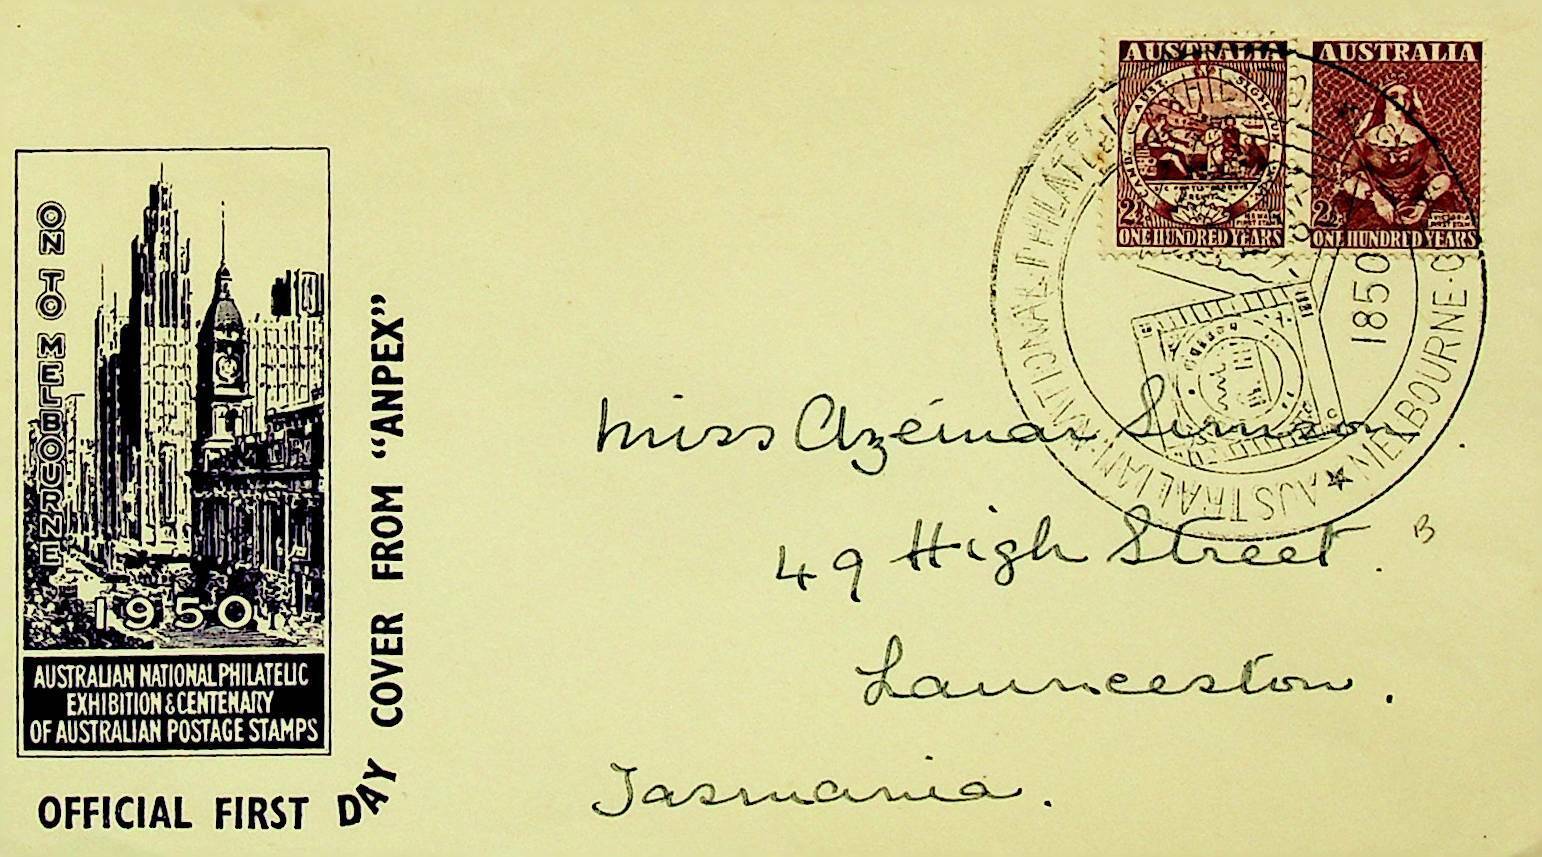 ON TO MELBOURNE
1950
AUSTRALIAN NATIONAL PHILATELIC
EXHIBITION & CENTENARY
OF AUSTRALIAN POSTAGE STAMPS
OFFICIAL FIRST DAY COVER FROM "ANPEX"
AUSTRALIA
2½
ONE HUNDRED YEARS
AUSTRALIA
2½
ONE HUNDRED YEARS
AUSTRALIAN NATIONAL PHILATELIC
MELBOURNE
1850
Miss Azémar Simson.
49 High Street.
Launceston.
Tasmania.
B